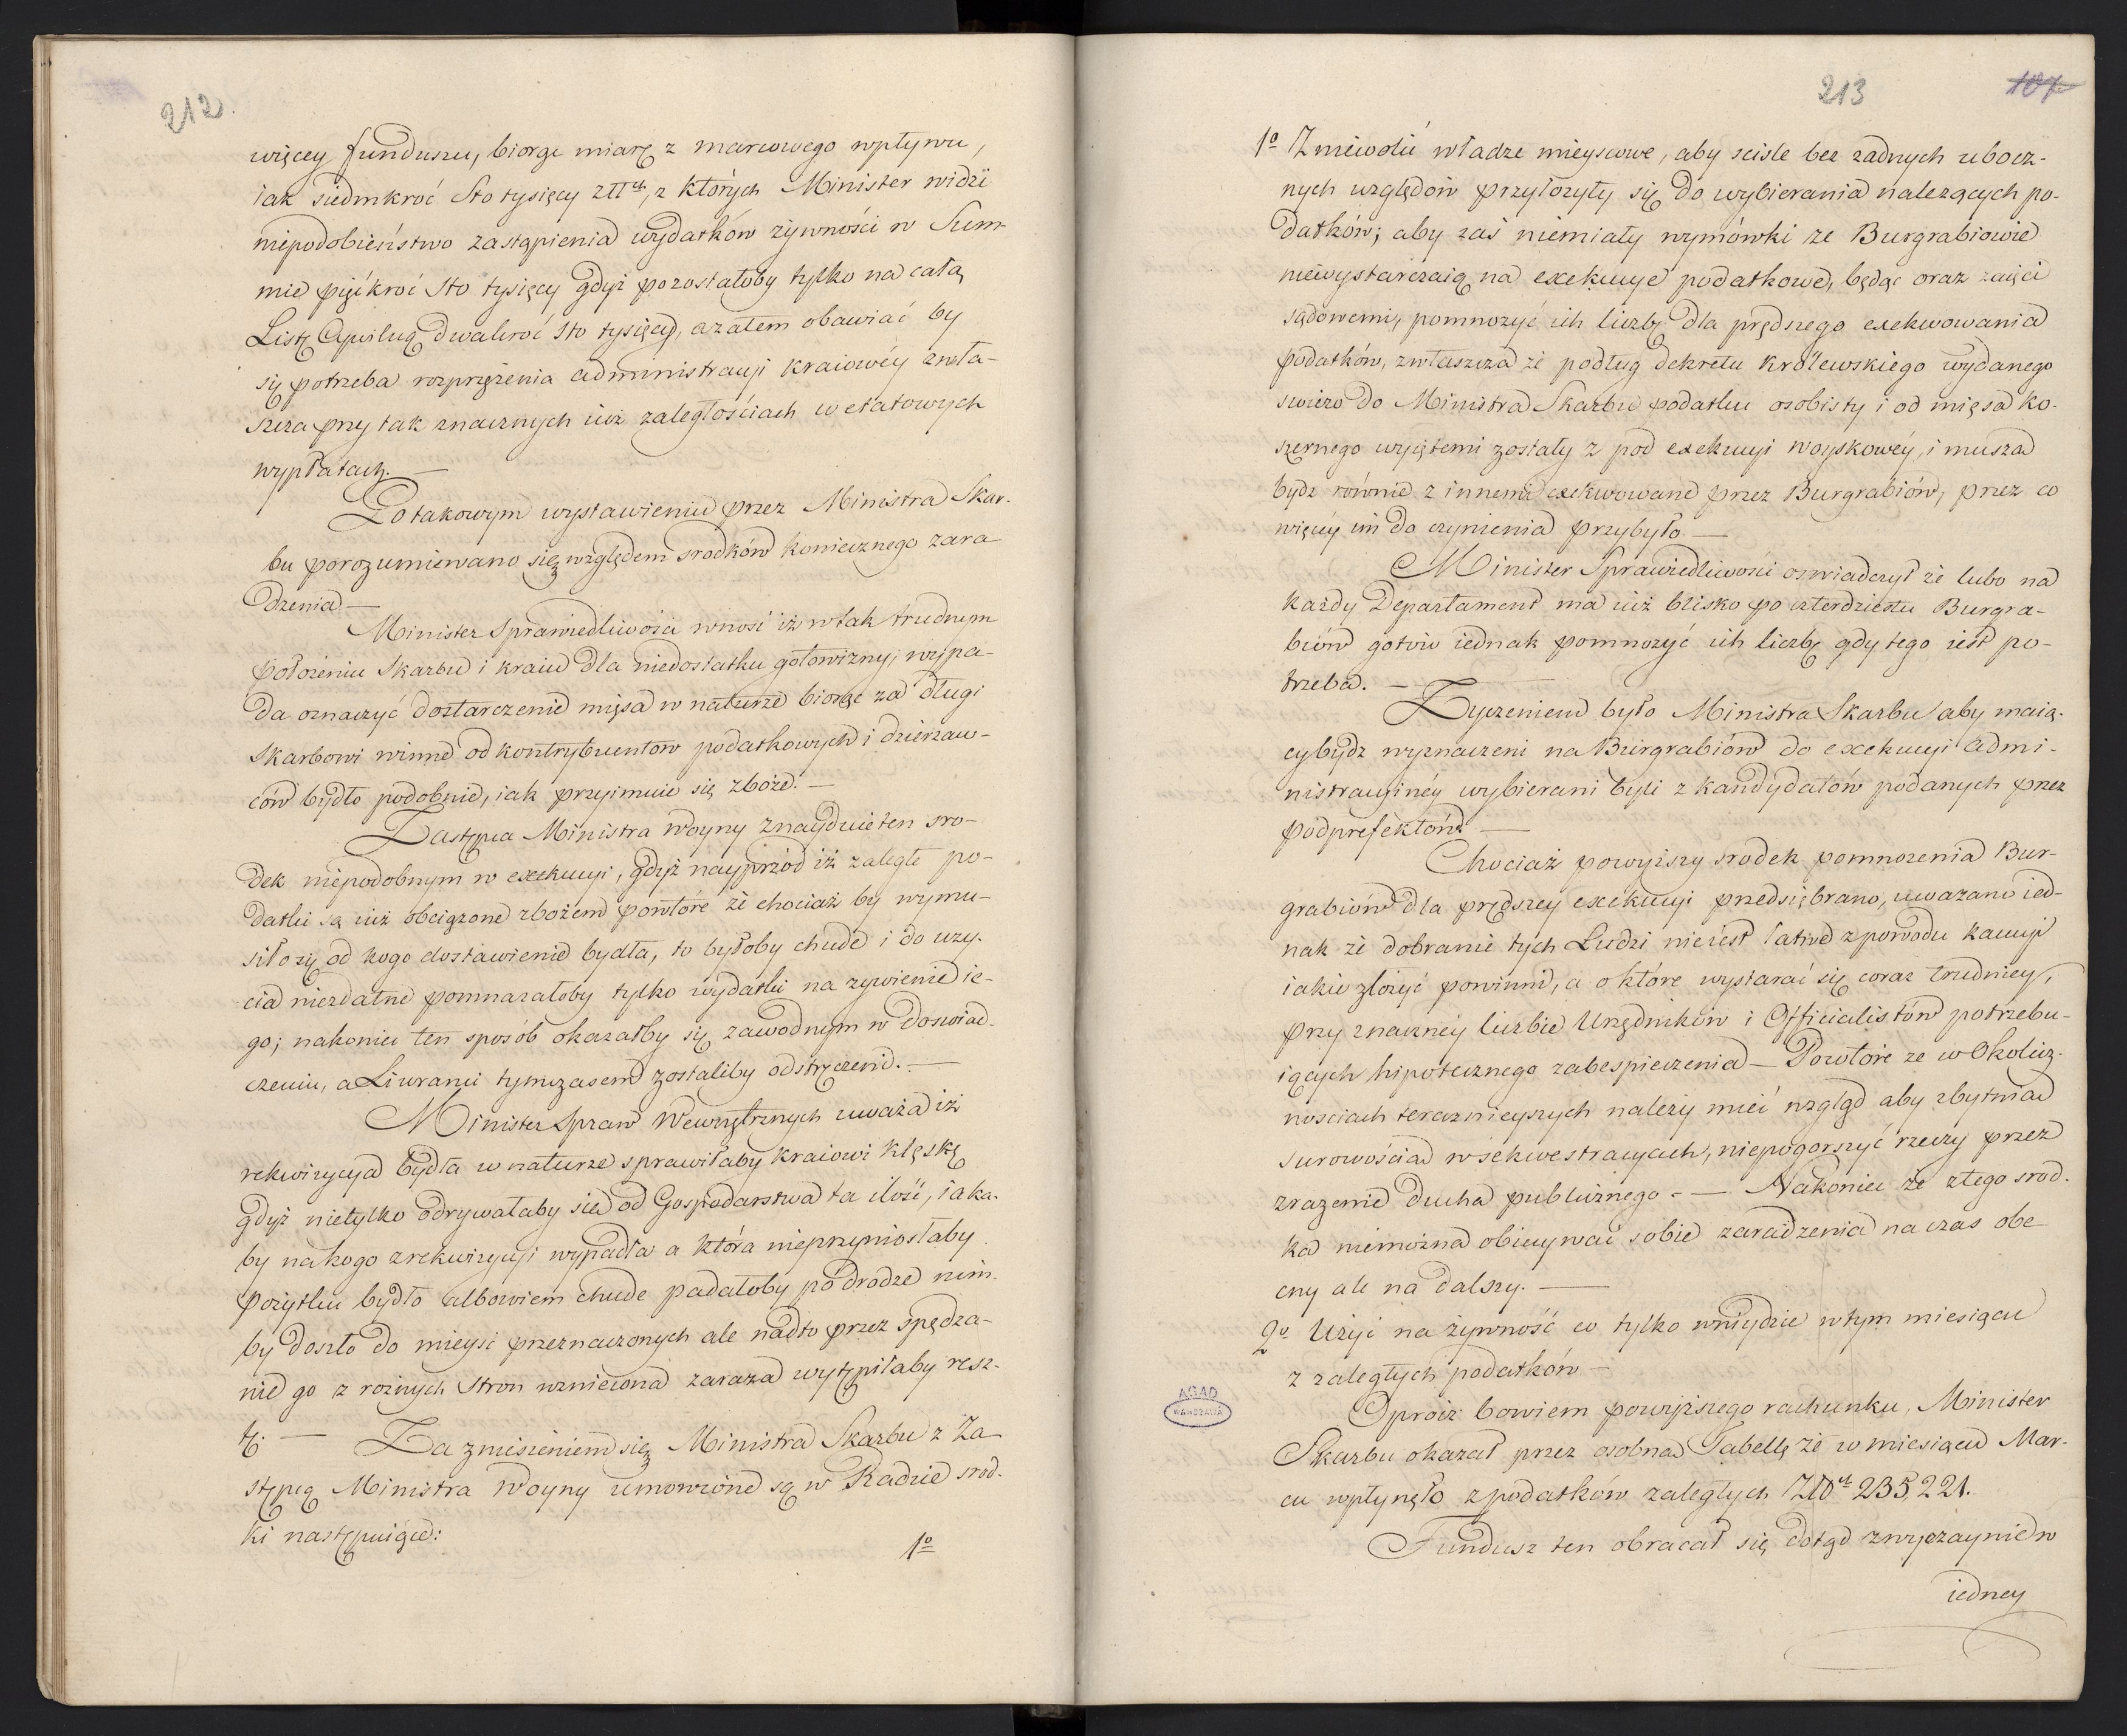 212.
więcey funduszu, biorąc miarę z marcowego wpływu,
iak siedmkroć Sto tysięcy złłch, z których Minister widzi
niepodobieństwo zastąpienia wydatków żywności w Sum-
mie pięćkroć Sto tysięcy gdyż pozostałoby tylko na całą
Listę Cywilną dwakroć Sto tysięcy, a zatem obawiać by
się potrzeba rozprzężenia administracyi kraiowéy zwła-
szcza przy tak znacznych iuż zaległościach w etatowych
wypłatach. —
Po takowym wystawieniu przez Ministra Skar-
bu porozumiewano się względem srodków koniecznego zara
dzenia —
Minister Sprawiedliwości wnosi iż w tak trudnym
położeniu Skarbu i kraiu dla niedostatku gotowizny, wypa-
da oznaczyć dostarczenie mięsa w naturze biorąc za długi
Skarbowi winne od kontrybuentów podatkowych i dzierżaw-
ców bydło podobnie, iak przyimuie się zboże. —
Zastępca Ministra Woyny znayduie ten sro-
dek niepodobnym w exekucyi, gdyż nayprzód iż zaległe po-
datki są iuż obciążone zbożem powtóre że chociaż by wymu-
siło się od kogo dostawienie bydła, to byłoby chude i do uży-
cia niezdatne pomnażałoby tylko wydatki na żywienie ie-
go; nakoniec ten sposób okazałby się zawodnym w doswiad-
czeniu, a Liweranci tymczasem zostaliby odstręczeni. —
Minister Spraw Wewnętrznych uważa iż
rekwizycya bydła w naturze sprawiłaby kraiowi klęskę
gdyż nietylko odrywałaby sie od Gospodarstwa ta ilość, iaka-
by na kogo z rekwizycyi wypadła a która nieprzyniosłaby
pożytku bydło albowiem chude padałoby po drodze nim-
by doszło do mieysc przeznaczonych ale nadto przez spędza-
nie go z roźnych Stron wzniecona zaraza wytępiłaby resz-
tę. — Za zniesieniem się Ministra Skarbu z Za
stępcą Ministra Woyny umowione są w Radzie srod-
ki następuiące:
1o
213
107
1o Zniewolić władze mieyscowe, aby scisle bez żadnych ubocz-
nych względów przyłożyły się do wybierania należących po-
datków; aby zaś niemiały wymówki że Burgrabiowie
niewystarczaią na exekucye podatkowe, będąc oraz zaięci
sądowemi, pomnożyć ich liczbę dla prędszego exekwowania
podatków, zwłaszcza że podług dekretu królewskiego wydanego
swieżo do Ministra Skarbu podatki osobisty i od mięsa ko-
szernego wyiętemi zostały z pod exekucyi woyskowéy, i muszą
bydz równie z innemi exekwowane przez Burgrabiów, przez co
więcéy im do czynienia przybyło —
Minister Sprawiedliwości oswiadczył że lubo na
każdy Departament ma iuż blisko po czterdziestu Burgra-
biów gotów iednak pomnożyć ich liczbę gdy tego iest po-
trzeba. —
Życzeniem było Ministra Skarbu aby maią-
cy bydz wyznaczeni na Burgrabiów do exekucyi Admi-
nistracyinéy wybierani byli z kandydatów podanych przez
podprefektów —
Chociaż powyiszy srodek pomnożenia Bur-
grabiów dla prędszey exekucyi przedsiębrano, uważano ied-
nak że dobranie tych Ludzi nie iest łatwe z powodu kaucyi
iakie złożyć powinni, a o które wystarać się coraz trudniey,
przy znaczney liczbie Urzędników i Officialistów potrzebu-
iących hipotecznego zabespieczenia — Powtóre że w Okolicz-
nosciach teraznieyszych należy mieć wzgląd aby zbytnią
surowością w sekwestracyach, niepogorszyć rzeczy przez
zrażenie ducha publicznego. — Nakoniec że z tego srod-
ka niemożna obiecywać sobie zaradzenia na czas obe
cny ale na dalszy. —
2o Użyć na żywność co tylko wniydzie w tym miesiącu
z zaległych podatków —
Oprócz bowiem powyższego rachunku, Minister
Skarbu okazał przez osobną Tabellę że w miesiącu Mar-
cu wpłynęło z podatków zaległych Złłch 235,221.
Fundusz ten obracał się dotąd zwyczaynie w
iedney
AGAD
WARSZAWA